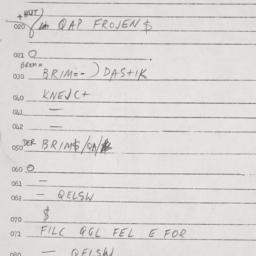 + HUT)
020 QAP FROJEN $
021 O
BREM=
030 BRIM=-) DAS+IK
040 KNEJC+
041 =
042 =
DER
050 BRIM$/QA/
060 O
061 =
062 - QELSW
070 $
071 FILC QGL FEL E FOR
080 - QELSW